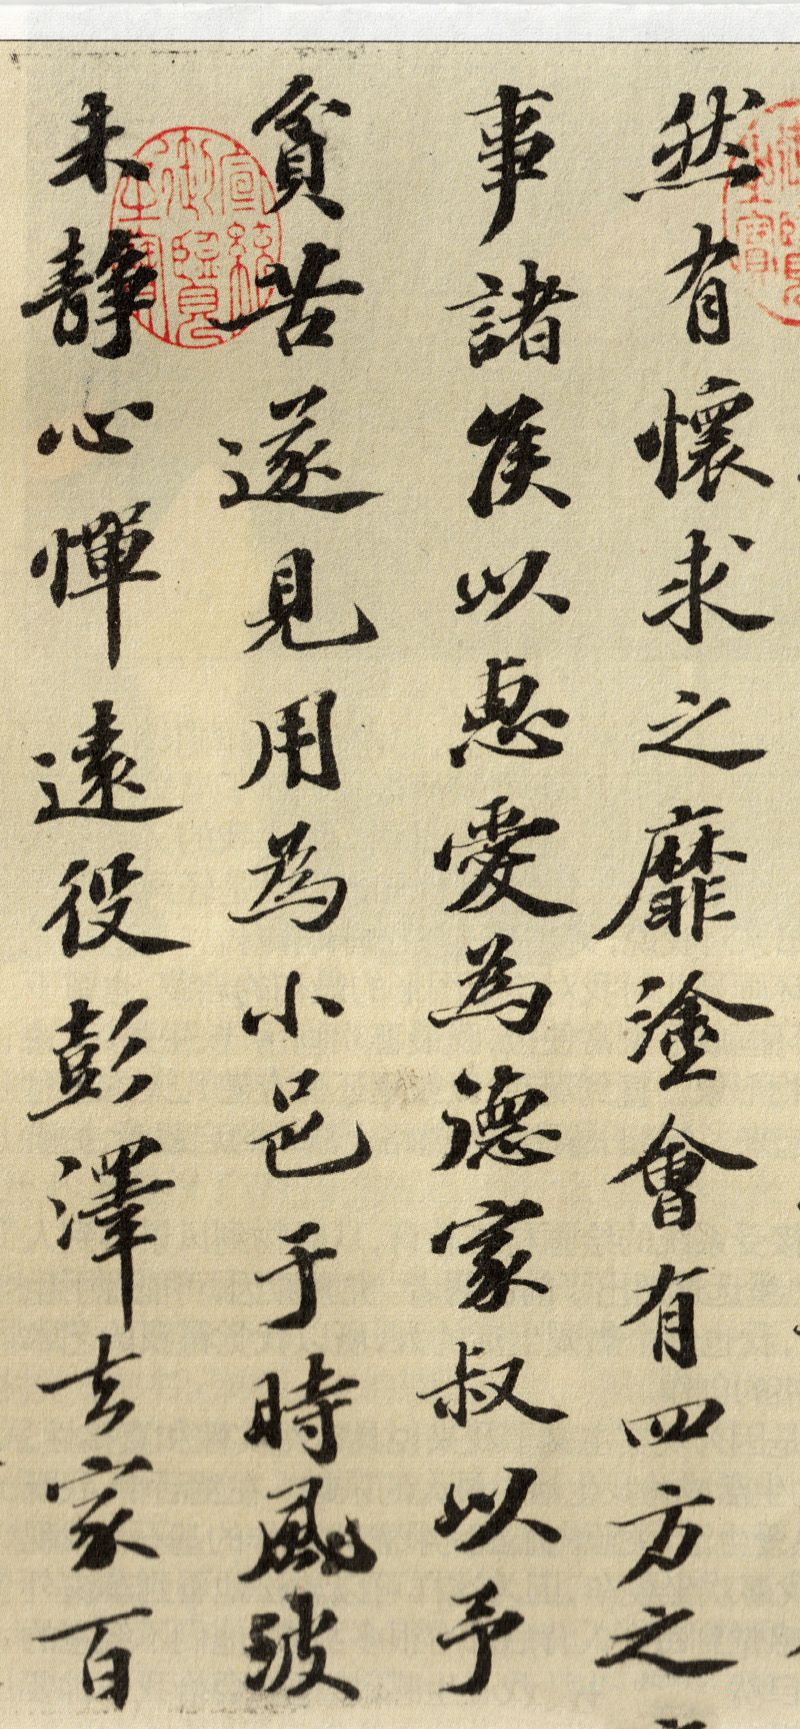 然有懷求之靡塗會有四方之
事諸侯以惠愛為德家叔以予
貧苦遂見用為小邑于時風波
未静心憚遠役彭澤去家百
宣統御覽之寶